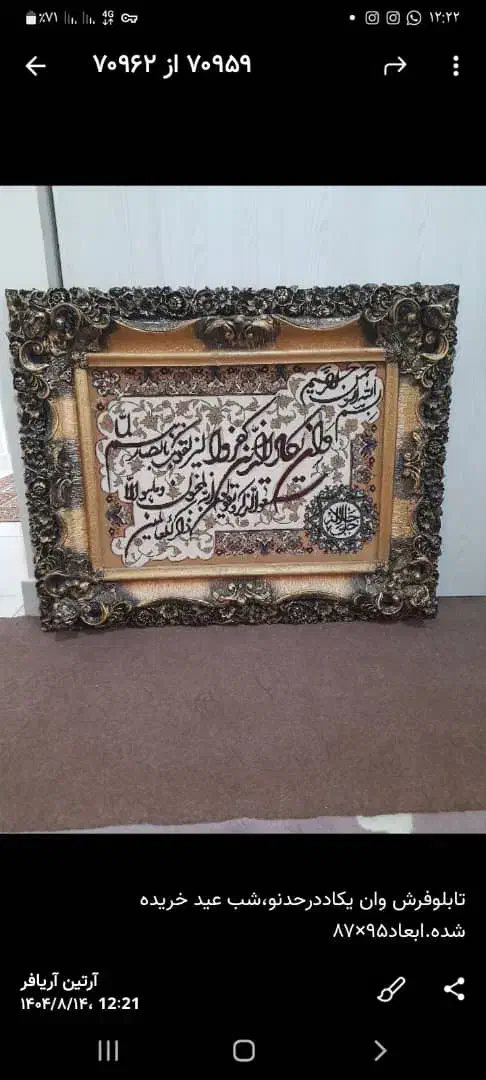 ٪۷۱ 4G ۱۲:۲۲
۷۰۹۵۹ از ۷۰۹۶۲
بسم الله الرحمن الرحیم
وان یکاد الذین کفروا لیزلقونک بابصارهم لما
سمعوا الذکر و یقولون انه لمجنون و ما هو الا
ذکر للعالمین
تابلوفرش وان یکاددرحدنو،شب عید خریده
شده.ابعاد۹۵×۸۷
آرتین آریافر
۱۴۰۴/۸/۱۴، 12:21